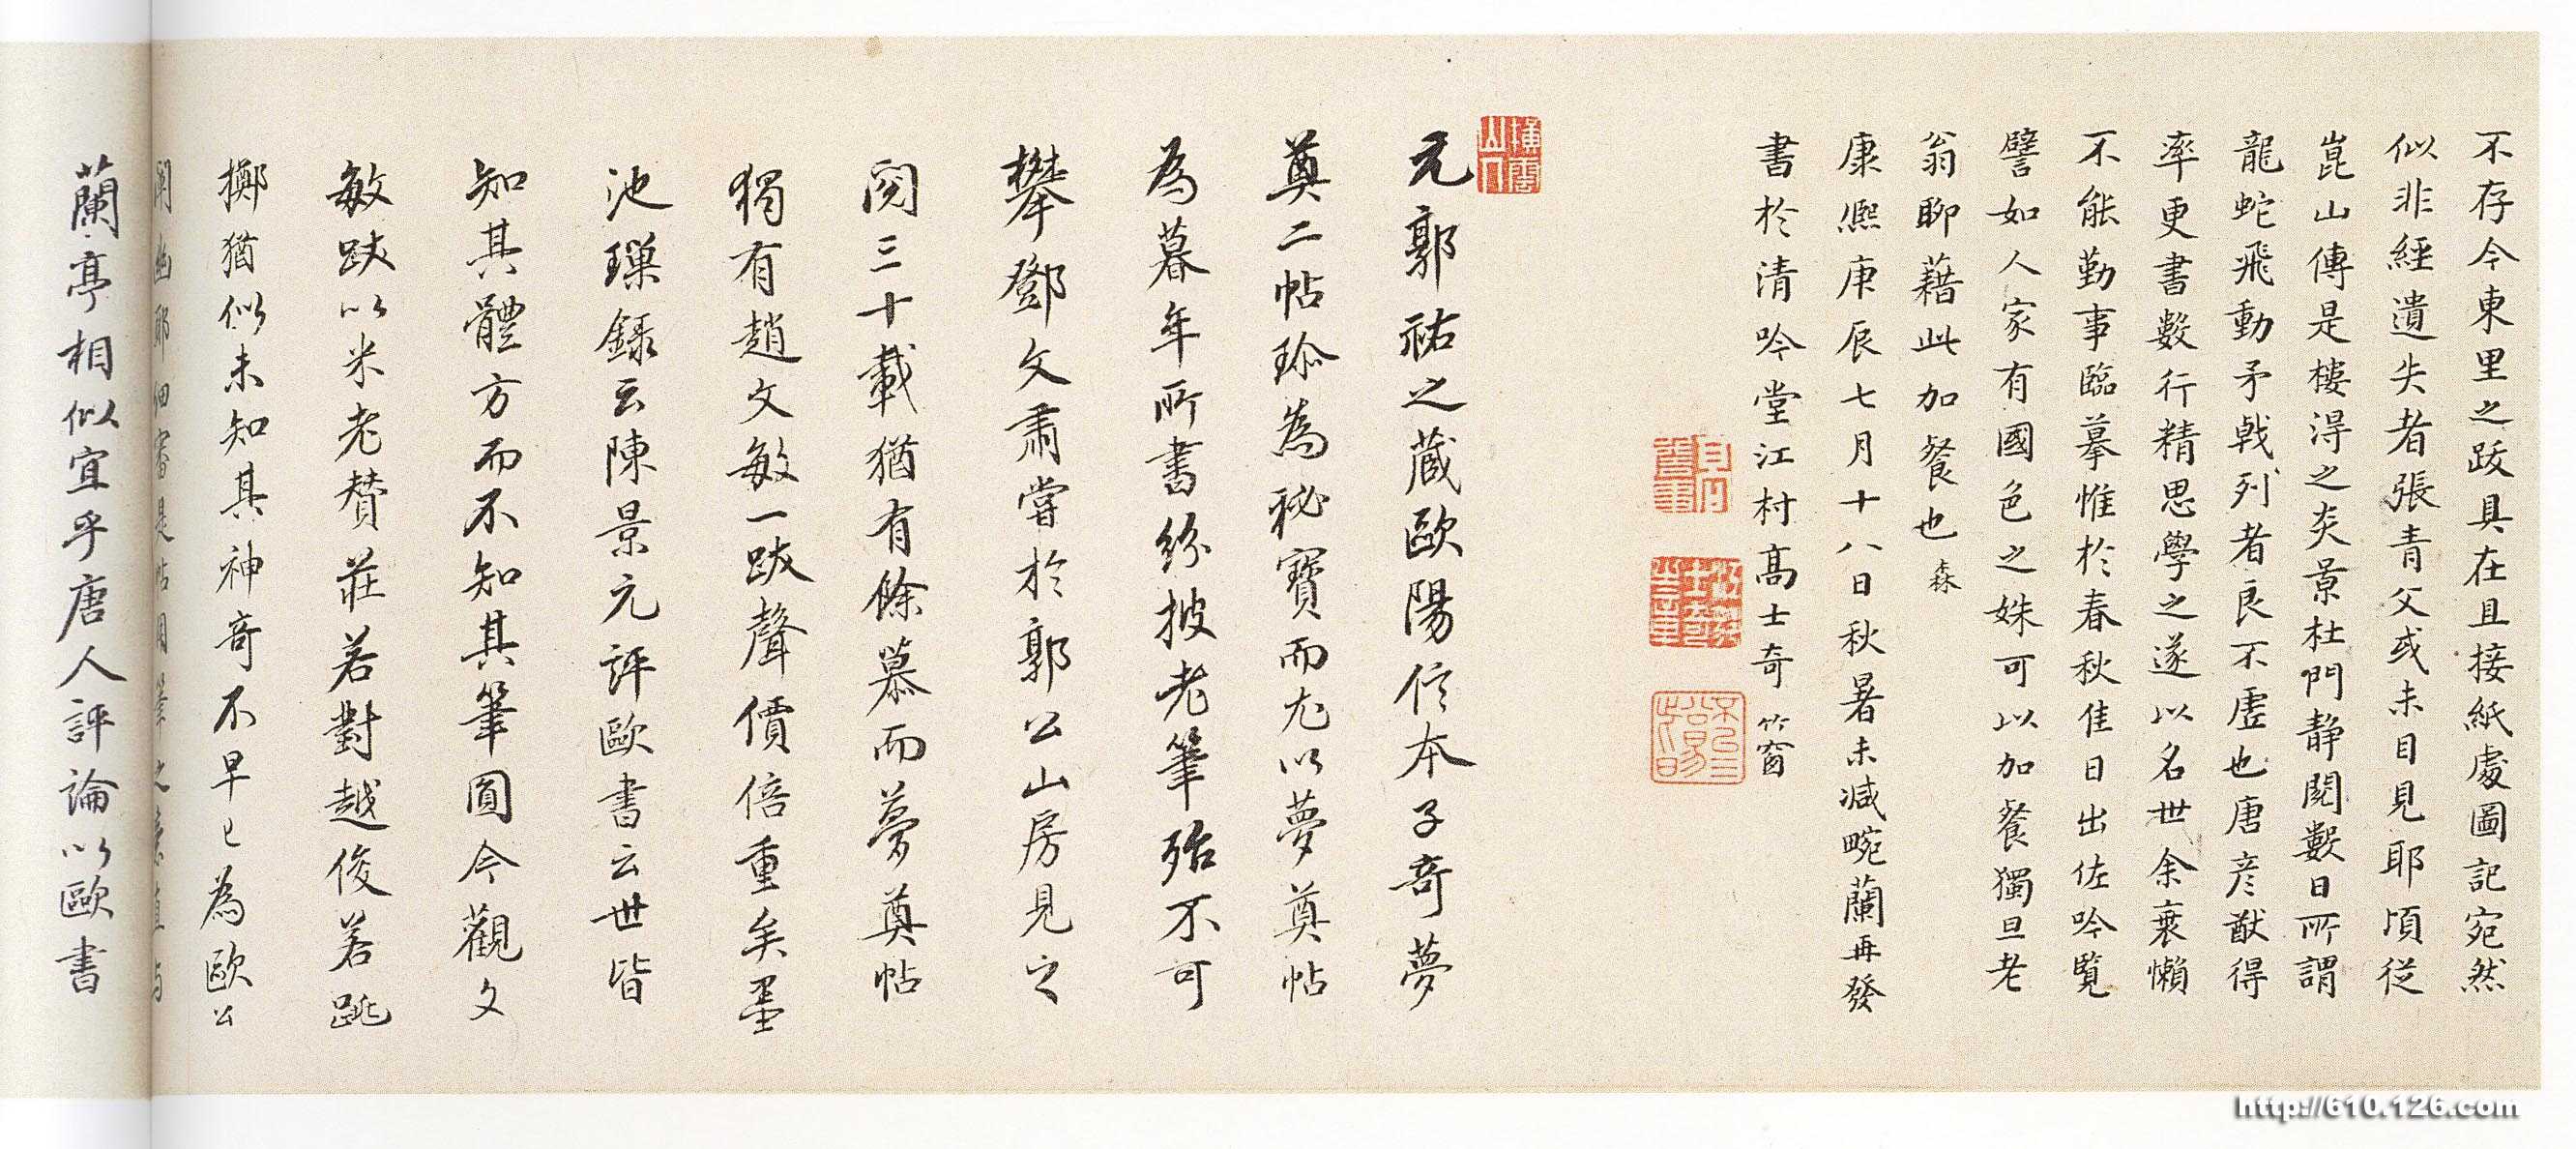 不存今東里之跋具在且接紙處圖記宛然
似非經遺失者張青父或未目見耶頃從
崑山傳是樓淂之炎景杜門静閱數日所謂
龍蛇飛動矛戟列者良不虛也唐彦猷得
率更書數行精思學之遂以名世余衰懶
不能勤事臨摹惟於春秋佳日出佐吟覽
譬如人家有國色之姝可以加餐獨旦老
翁聊藉此加餐也 森
康熙庚辰七月十八日秋暑未减畹蘭再發
書於清吟堂江村高士奇 窗
元郭祐之蔵歐陽信本子奇夢
奠二帖珎為祕寶而尤以夢奠帖
為暮年所書紛披老筆殆不可
攀鄧文肅嘗於郭公山房見之
閱三十載猶有餘慕而夢奠帖
獨有趙文敏一跋聲價倍重矣墨
池璅錄云陳景元評歐書云世皆
知其體方而不知其筆圓今觀文
敏跋以米老賛莊若對越俊若跳
擲猶似未知其神奇不早已為歐公
闡幽耶細審是帖用筆之意直与
蘭亭相似宜乎唐人評論以歐書
http://610.126.com